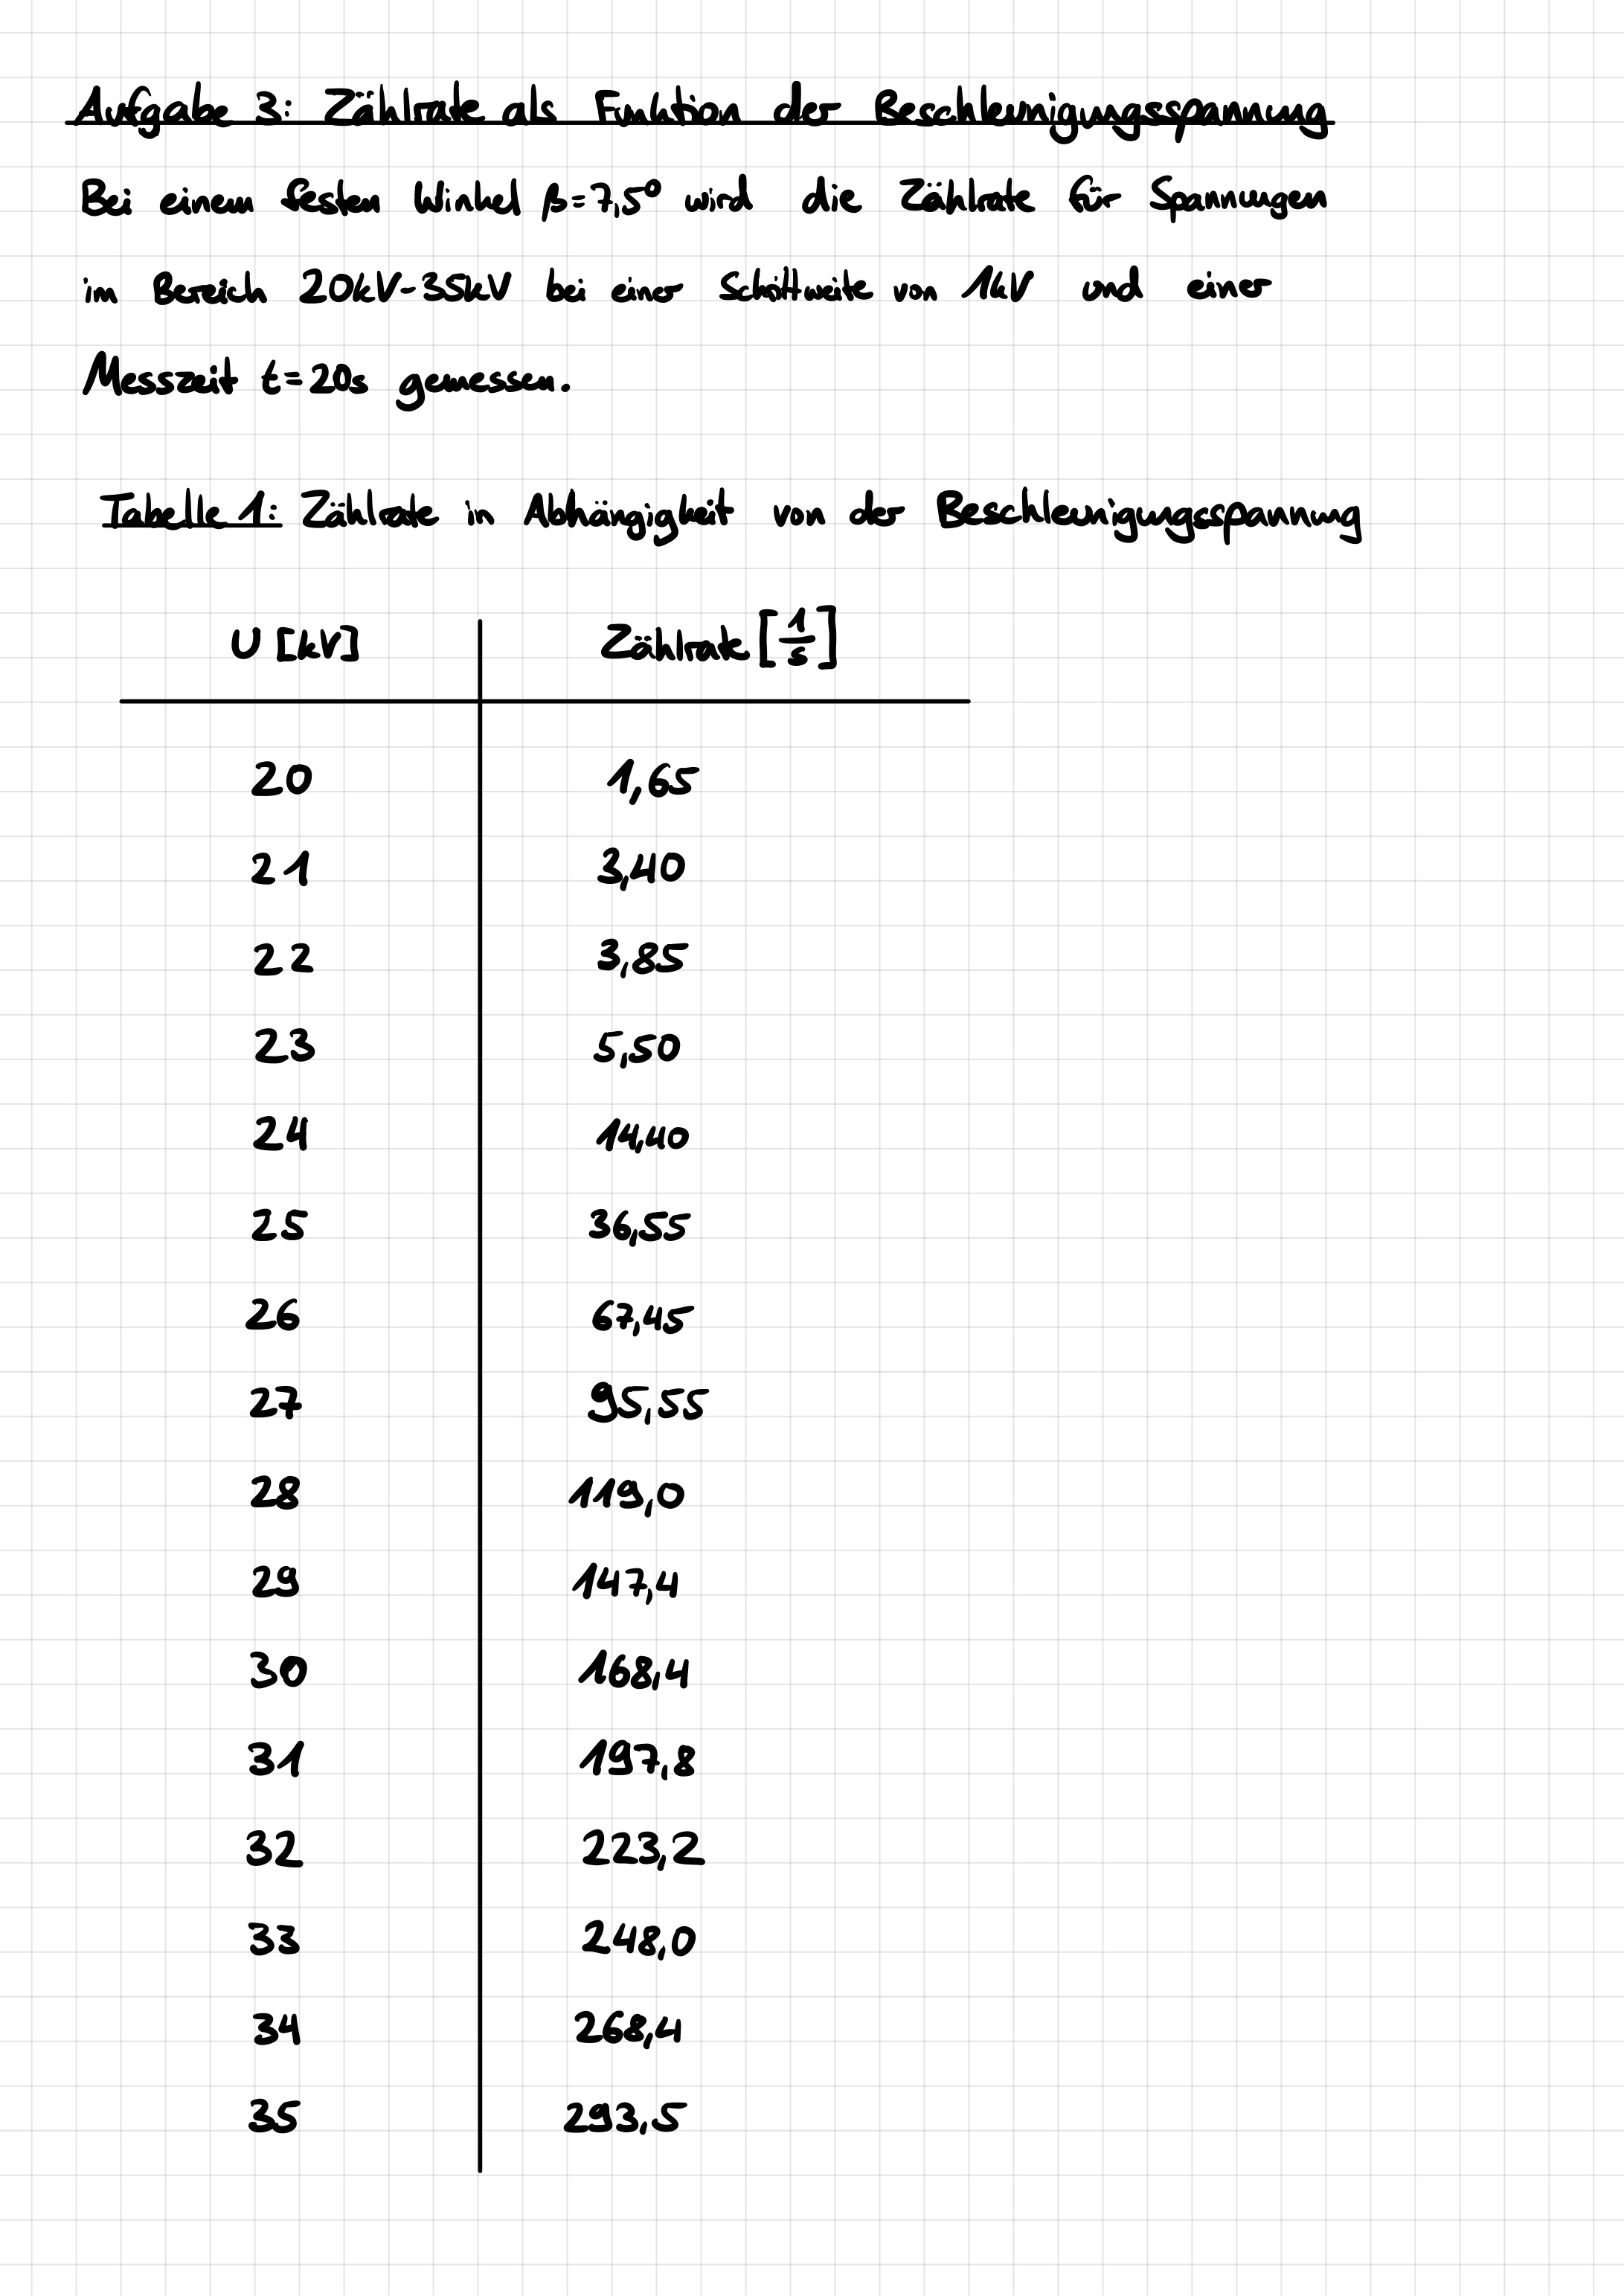 Aufgabe 3: Zählrate als Funktion der Beschleunigungsspannung
Bei einem festen Winkel β=7,5° wird die Zählrate für Spannungen
im Bereich 20kV-35kV bei einer Schrittweite von 1kV und einer
Messzeit t=20s gemessen.
Tabelle 1: Zählrate in Abhängigkeit von der Beschleunigungsspannung
U [kV] Zählrate [1/s]
20 1,65
21 3,40
22 3,85
23 5,50
24 14,40
25 36,55
26 67,45
27 95,55
28 119,0
29 147,4
30 168,4
31 197,8
32 223,2
33 248,0
34 268,4
35 293,5